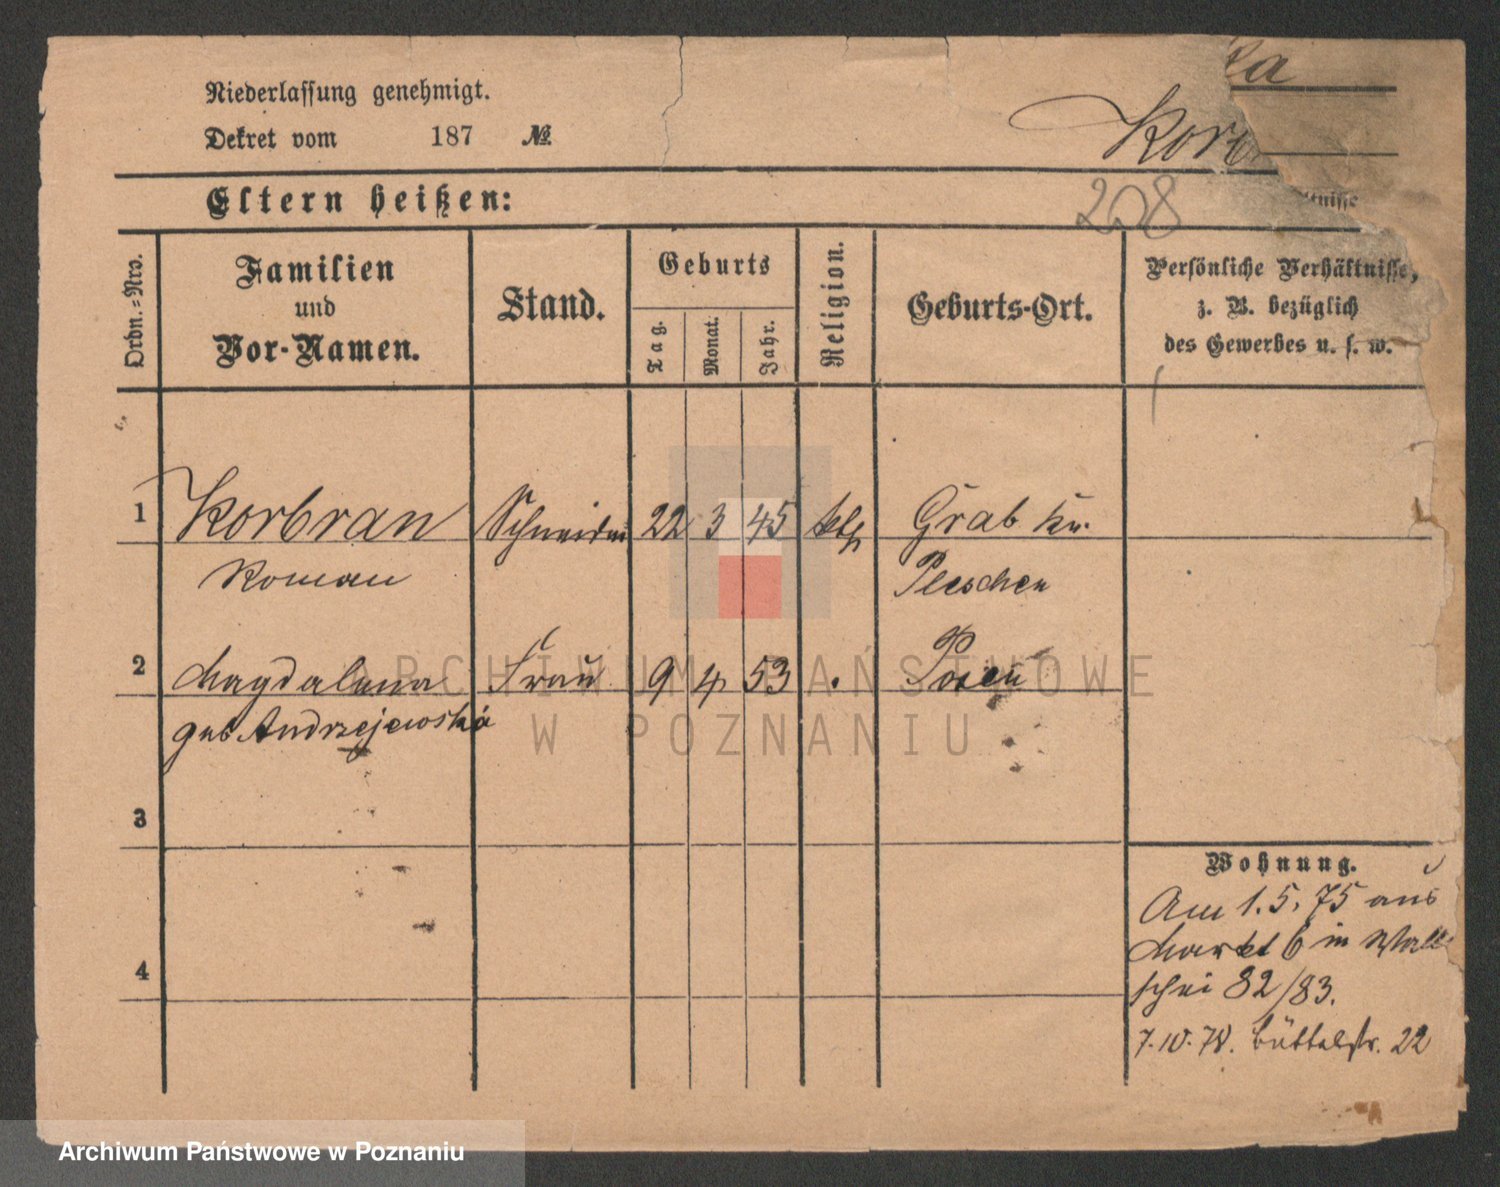 Niederlassung genehmigt.
ka
Dekret vom 187 №
Korb
208
Eltern heißen:
tnisse
Ordn.-Nro.
Familien
und
Vor-Namen.
Stand.
Geburts
Tag.
Monat.
Jahr.
Religion.
Geburts-Ort.
Persönliche Verhältnisse,
z. B. bezüglich
des Gewerbes u. s. w.
1 Korbran Schneider 22 3 45 kth Grab Kr.
Roman Pleschen
2 Magdalena Frau 9 4 53 Posen
geb Andrzejewska
ARCHIWUM PAŃSTWOWE
W POZNANIU
3
Wohnung.
Am 1.5.75 aus
Markt 6 in Wall
schei 82/83.
4
7.10.78. Büttelstr. 22
Archiwum Państwowe w Poznaniu